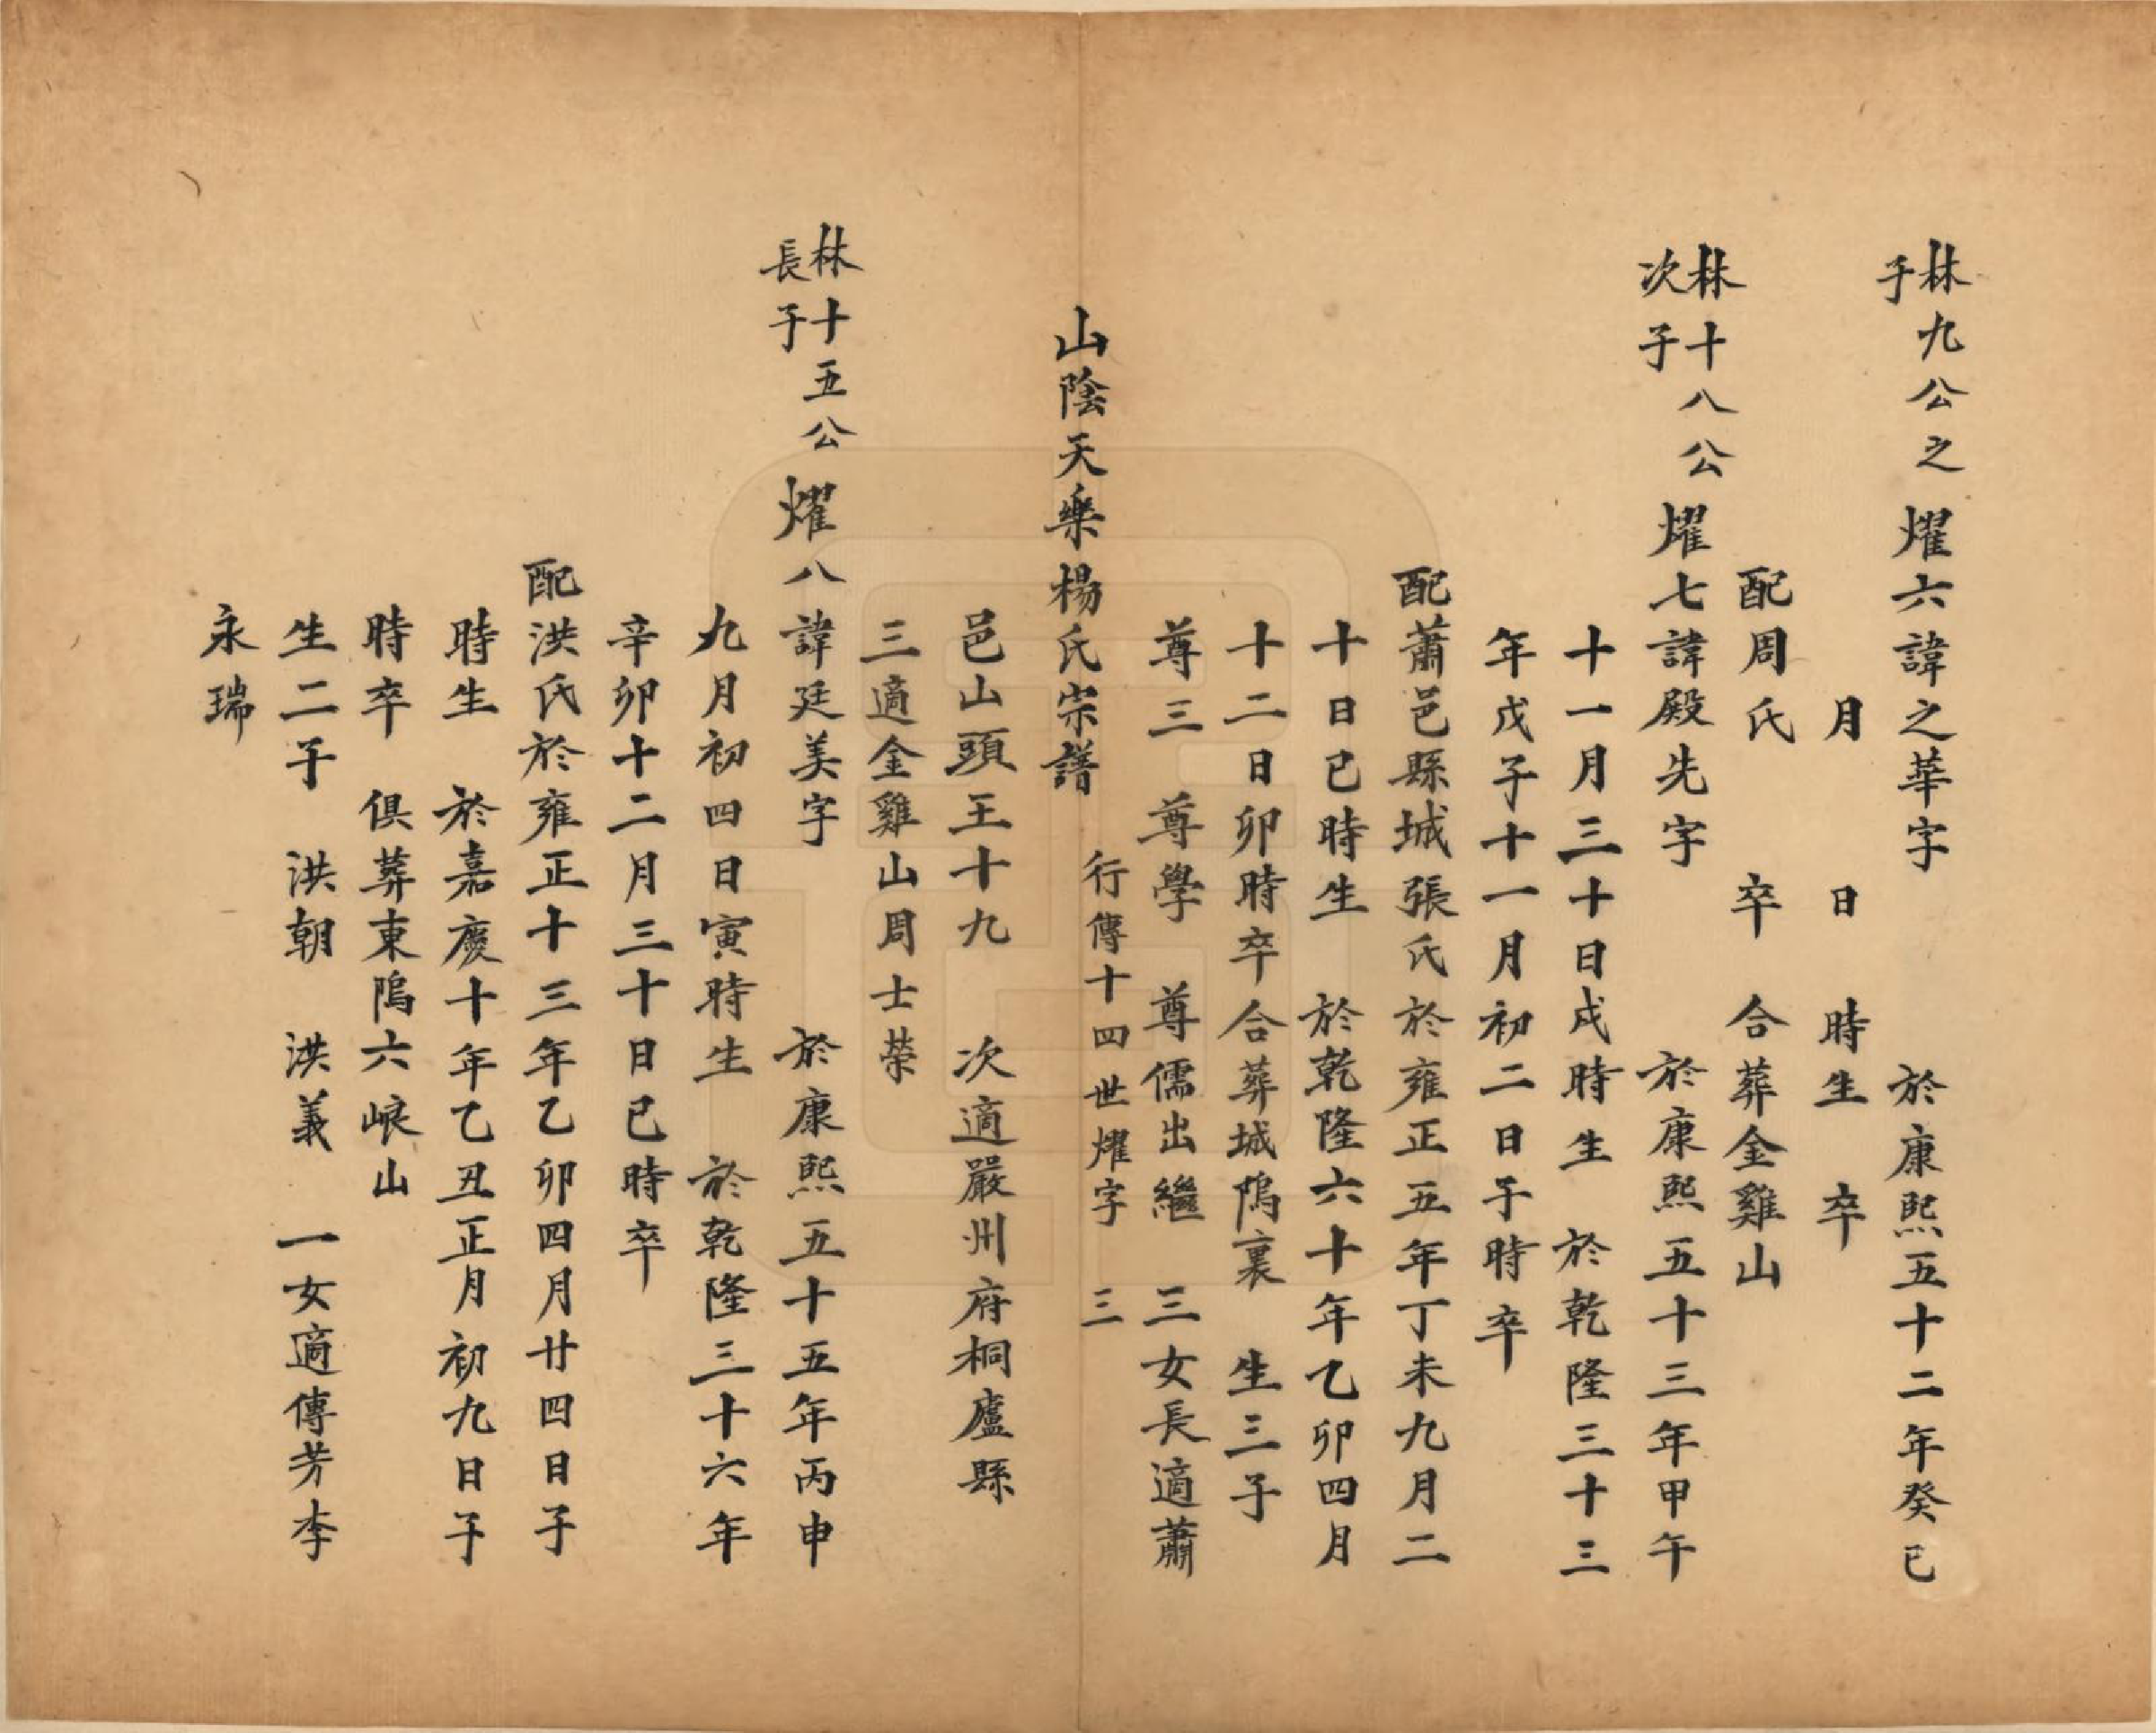 林九公之子 燿六諱之華字 於康熙五十二年癸巳
月 日 時生 卒
配周氏 卒 合葬金雞山
林十八公次子 燿七諱殿先字 於康熙五十三年甲午
十一月三十日戌時生 於乾隆三十三
年戊子十一月初二日子時卒
配蕭邑縣城張氏於雍正五年丁未九月二
十日巳時生 於乾隆六十年乙卯四月
十二日卯時卒合葬城隖裏 生三子
尊三 尊學 尊儒出繼 三女長適蕭
山陰天樂楊氏宗譜 行傳十四世燿字 三
邑山頭王十九 次適嚴州府桐廬縣
三適金雞山周士榮
林十五公長子 燿八諱廷美字 於康熙五十五年丙申
九月初四日寅時生 於乾隆三十六年
辛卯十二月三十日巳時卒
配洪氏於雍正十三年乙卯四月廿四日子
時生 於嘉慶十年乙丑正月初九日子
時卒 俱葬東隖六峎山
生二子 洪朝 洪義 一女適傳芳李
永瑞